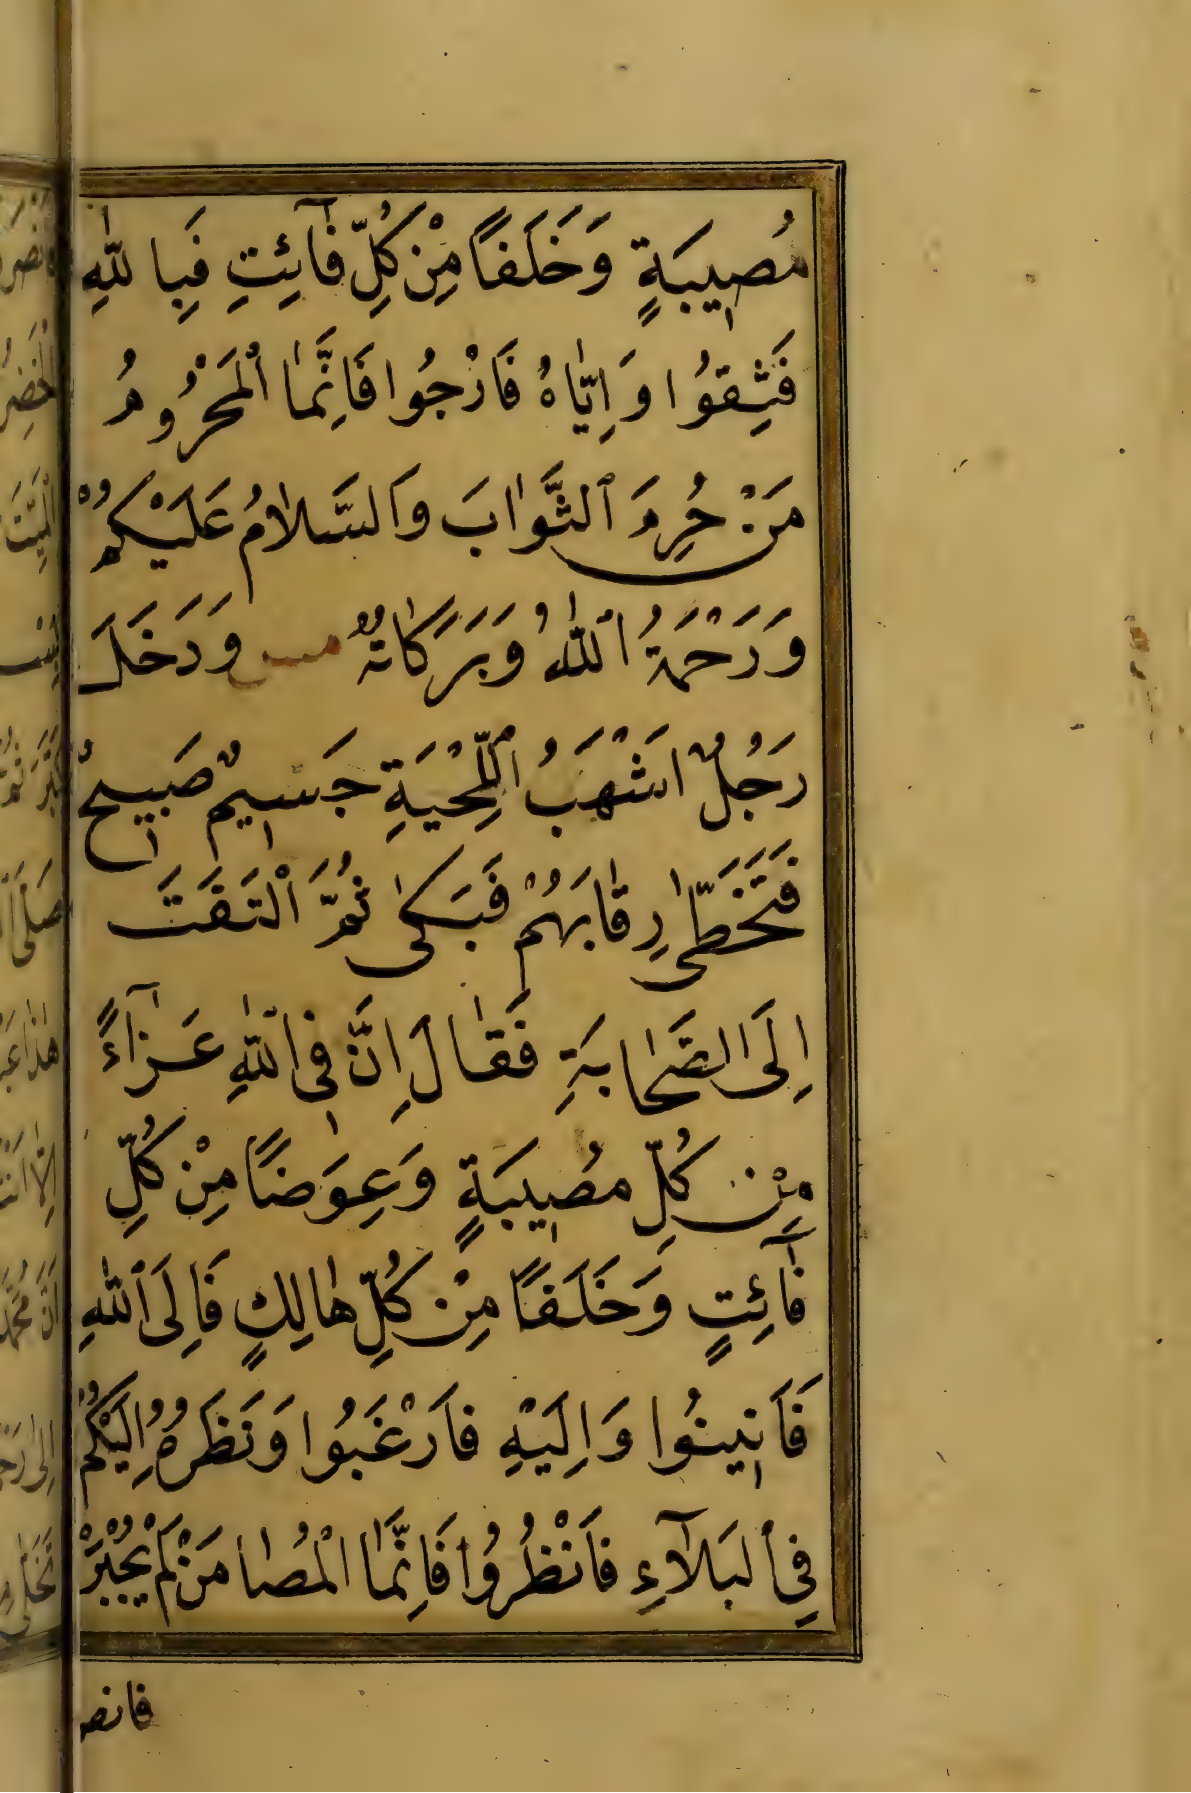 مُصِيبَةٍ وَخَلَفًا مِنْ كُلِّ فَآئِتٍ فَبِاللّٰهِ
فَثِقُوا وَاِيَّاهُ فَارْجُوا فَاِنَّمَا الْمَحْرُومُ
مَنْ حُرِمَ الثَّوَابَ وَالسَّلَامُ عَلَيْكُمْ
وَرَحْمَةُ اللّٰهِ وَبَرَكَاتُهُ وَدَخَلَ
رَجُلٌ اَشْهَبُ اللِّحْيَةِ جَسِيمٌ صَبِيحٌ
فَتَخَطّٰى رِقَابَهُمْ فَبَكٰى ثُمَّ الْتَفَتَ
اِلَى الصَّحَابَةِ فَقَالَ اِنَّ فِى اللّٰهِ عَزَآءً
مِنْ كُلِّ مُصِيبَةٍ وَعِوَضًا مِنْ كُلِّ
فَآئِتٍ وَخَلَفًا مِنْ كُلِّ هَالِكٍ فَاِلَى اللّٰهِ
فَاَنِيبُوا وَاِلَيْهِ فَارْغَبُوا وَنَظَرُهُ اِلَيْكُمْ
فِى الْبَلَآءِ فَانْظُرُوا فَاِنَّمَا الْمُصَا مَنْ لَمْ يُجْبَرْ
فانصر